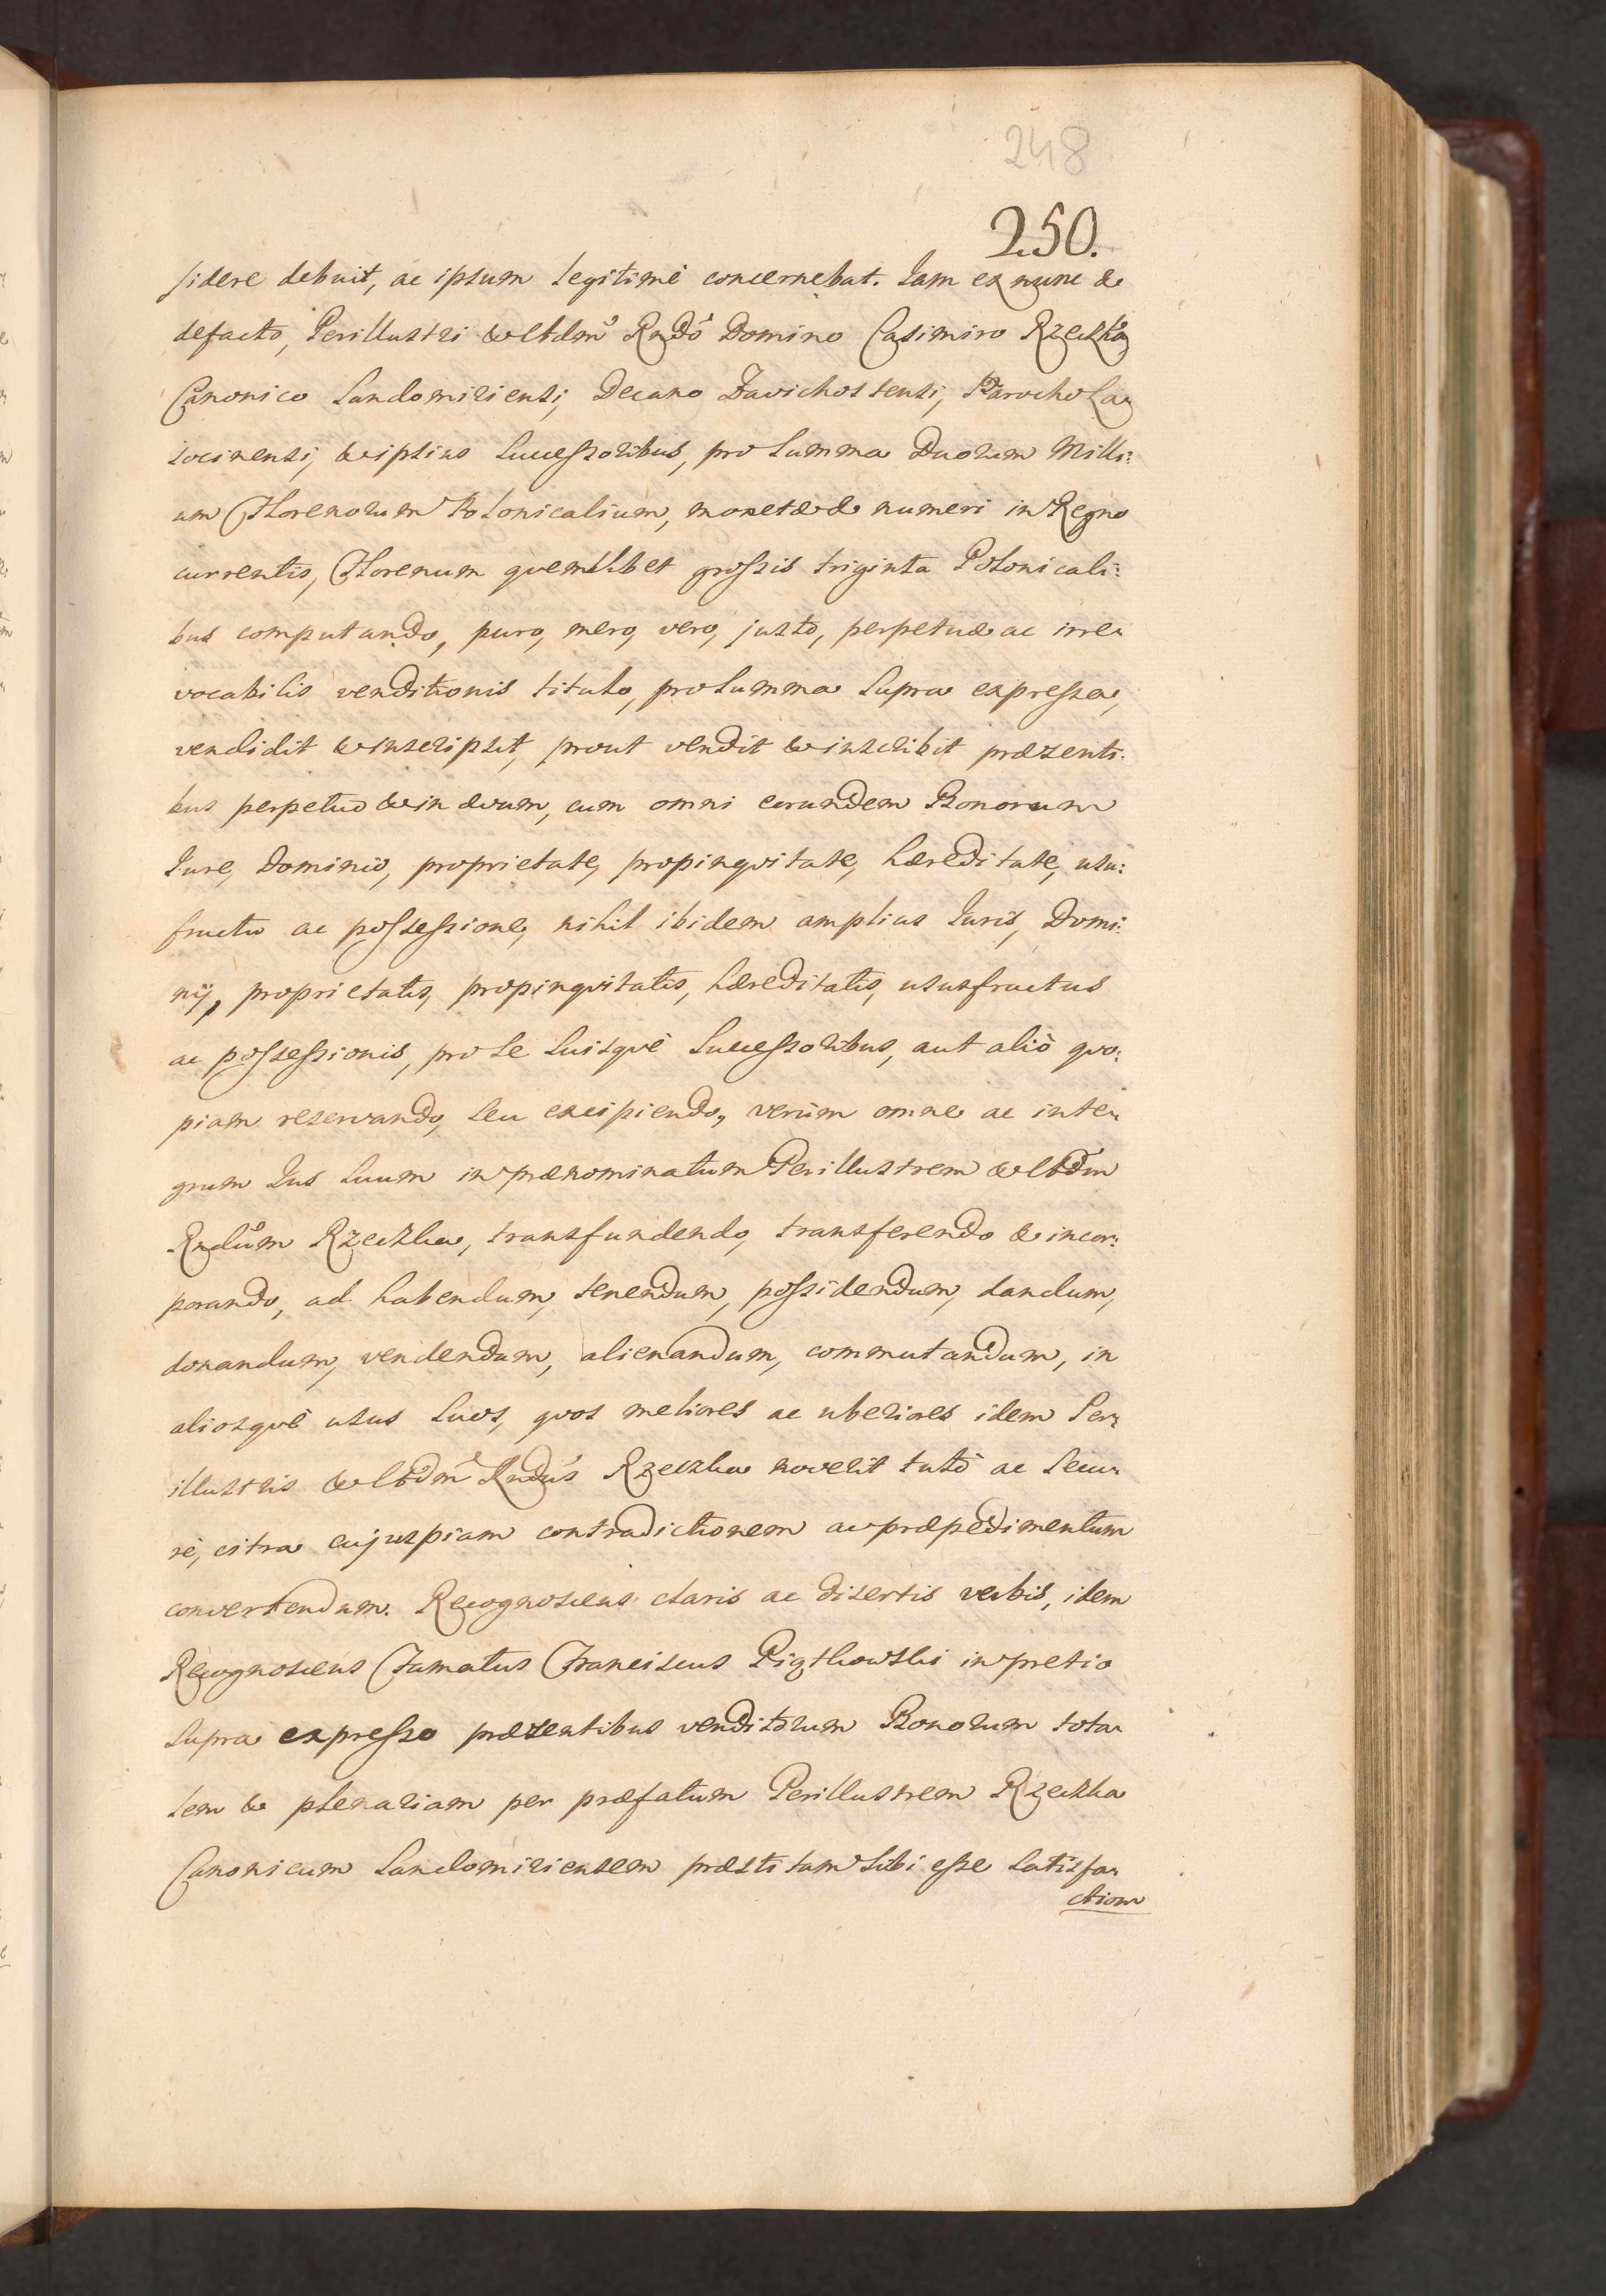 248
250.
sidere debuit, ac ipsum legitimè concernebat. Iam ex nunc &
defacto, Perillustri & Ad̃m̃ Rndo Domino Casimiro Rzeczka
Canonico Sandomiriensi, Decano Zavichostensi, Parocho La-
socinensi, & ipsius Successoribus, pro Summa Duorum Milli:
um Florenorum Polonicalium, monetæ & numeri in Regno
currentis, Florenum quemlibet grossis triginta Polonicali:
bus computando, puro, mero, vero, justo, perpetuæ ac irre-
vocabilis venditionis titulo, pro Summa Supra expressa,
vendidit & inscripsit, prout vendit & inscribit præsenti:
bus perpetuo & in ævum, cum omni eorundem Bonorum
Iure, Dominio, proprietate, propinqvitate, hæreditate, usu:
fructu ac possessione, nihil ibidem amplius Iuris, Domi:
nij, proprietatis, propinqvitatis, hæreditatis, ususfructus
ac possessionis, pro Se Suisqvè Successoribus, aut aliò qvo:
piam reservando, Seu excipiendo, verùm omne ac inte-
grum Ius Suum in prænominatum Perillustrem & Ad̃m
Rndũm Rzeczka, transfundendo, transferendo & incor:
porando, ad habendum, tenendum, possidendum, dandum,
donandum, vendendum, alienandum, commutandum, in
aliosqvè usus Suos, qvos meliores ac uberiores idem Per-
illustris & Ad̃m̃ Rndus Rzeczka noverit tutò ac Secu-
rè, citra cujuspiam contradictionem ac præpedimentum
convertendum. Recognoscens claris ac disertis verbis, idem
Recognoscens Famatus Franciscus Piątkowski in pretio
Supra expresso præsentibus venditorum Bonorum tota-
lem & plenariam per præfatum Perillustrem Rzeczka
Canonicum Sandomiriensem præstitam Sibi esse Satisfa-
ctiom